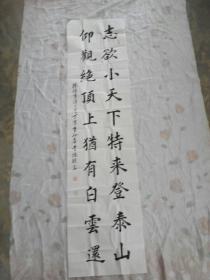 志欲小天下特来登泰山
仰觀絕頂上猶有白雲還